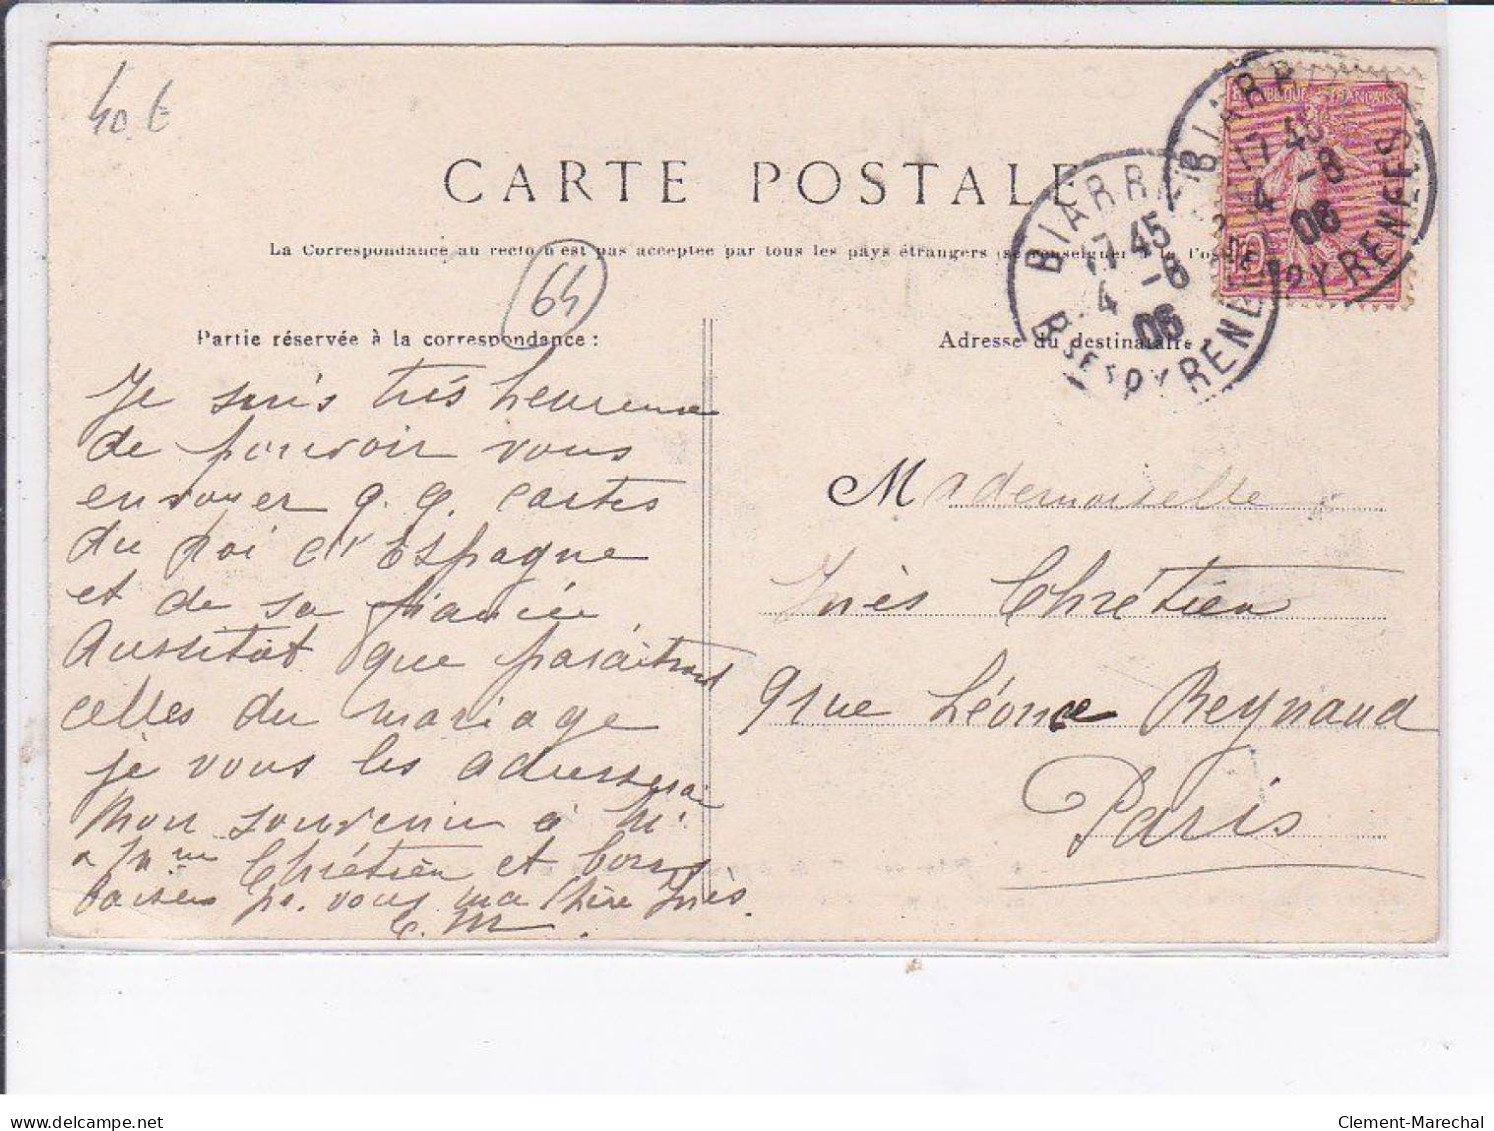 40 €
CARTE POSTALE
La Correspondance au recto n'est pas acceptée par tous les pays étrangers (se renseigner à la Poste
64
Partie réservée à la correspondance :
Je suis très heureuse
de pouvoir vous
envoyer q. q. cartes
du roi d'Espagne
et de sa fiancée
Aussitôt que paraitront
celles du mariage
je vous les adresserai
Mon souvenir à Mr
& Mme Chrétien et bons
baisers pr. vous ma chère Inès.
C. M.
REPUBLIQUE FRANÇAISE
10
BIARRITZ
17 45
4 -8
06
BSES PYRENEES
BIARRITZ
17 45
4 -8
06
BSES PYRENEES
Adresse du destinataire
Mademoiselle
Inès Chrétien
9 rue Léonce Reynaud
Paris
delcampe.net
Clement-Marechal